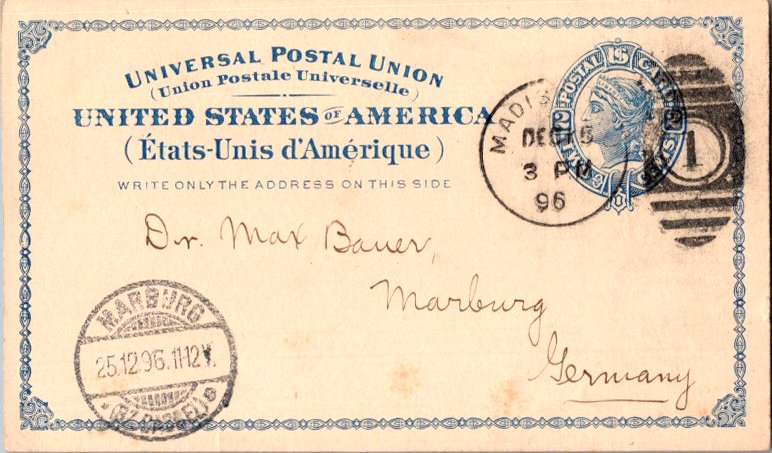 UNIVERSAL POSTAL UNION
(Union Postale Universelle)
UNITED STATES OF AMERICA
(États-Unis d'Amérique)
WRITE ONLY THE ADDRESS ON THIS SIDE
POSTAL CARD
DEC 16
3 PM
96
1
Dr. Max Bauer,
Marburg
Germany
MARBURG
25.12.96.11-12V.